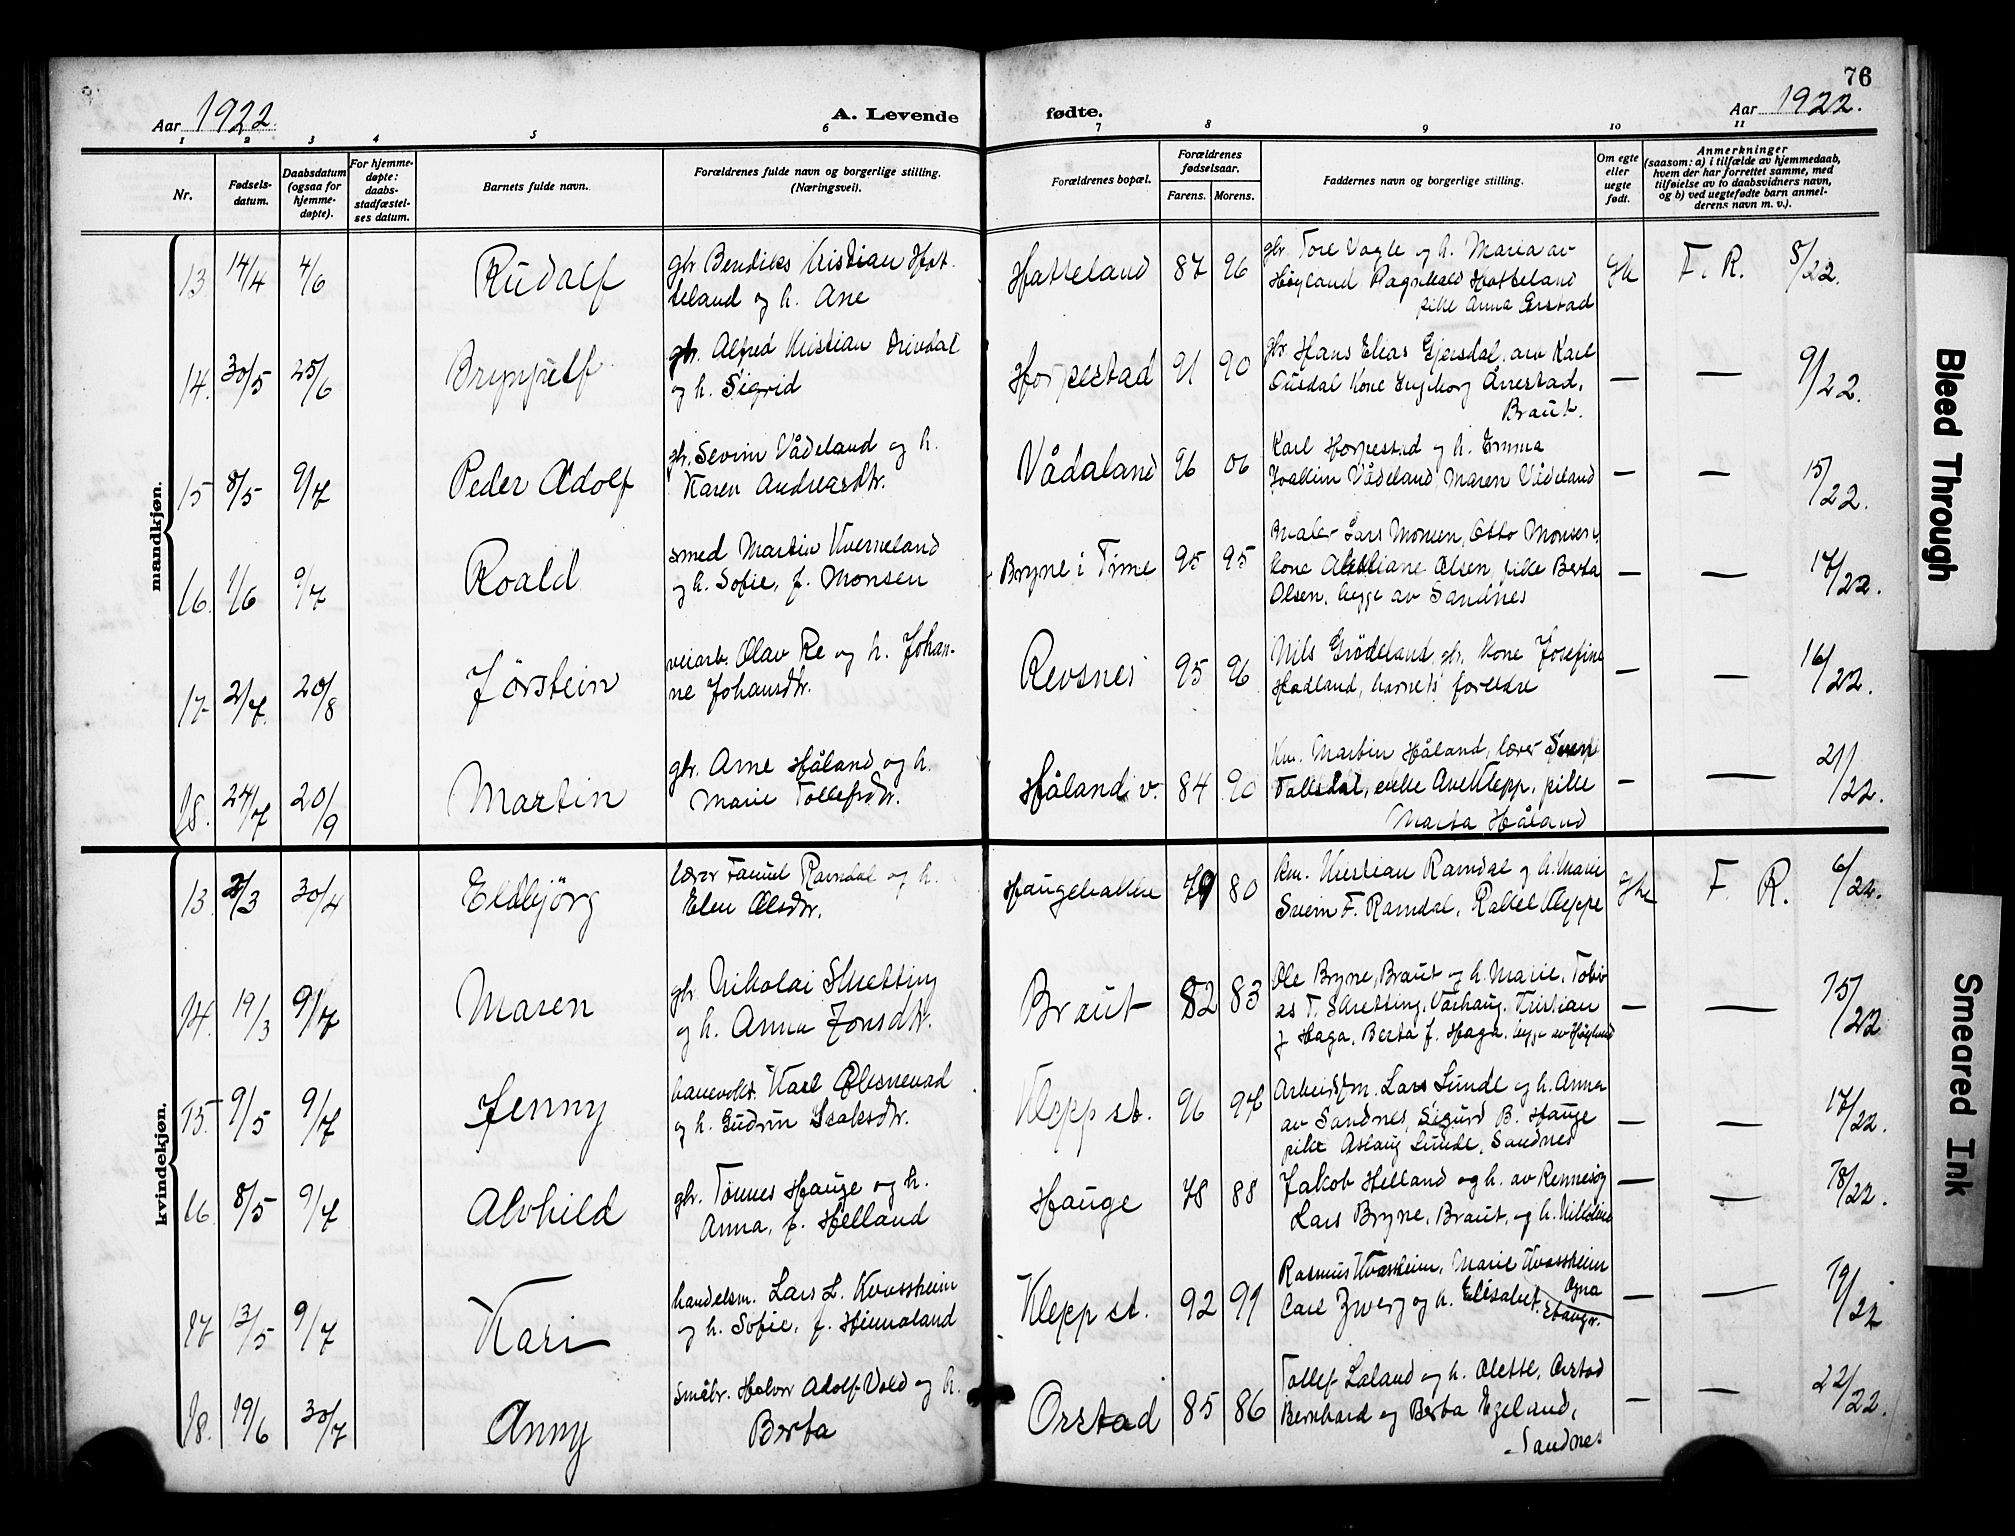 76
Aar 1922.
A. Levende fødte.
Aar 1922.
1 2 3 4 5 6 7 8 9 10 11
Nr.
Fødsels-
datum.
Daabsdatum
(ogsaa for
hjemme-
døpte).
For hjemme-
døpte:
daabs-
stadfæstel-
ses datum.
Barnets fulde navn.
Forældrenes fulde navn og borgerlige stilling.
(Næringsvei).
Forældrenes bopæl.
Forældrenes
fødselsaar.
Farens. Morens.
Faddernes navn og borgerlige stilling.
Om egte
eller
uegte
født.
Anmerkninger
(saasom: a) i tilfælde av hjemmedaab,
hvem der har forrettet samme, med
tilføielse av to daabsvidners navn,
og b) ved uegtefødte barn anmel-
derens navn m. v.).
mandkjøn.
13 14/4 4/6 Rudolf
gbr Bendiks Kristian Hat-
teland og h. Ane
Hatteland 87 96
gbr Tore Vagle og h. Maria av
Høyland Ragnvald Hatteland
pike Anna Erstad
F. R. 8/22.
14. 30/5 25/6 Brynjulf
gbr. Alfred Kristian
og h. Sigrid
Horpestad 91 90
gbr Hans Elias Gjesdal, arb Karl
Ousdal Kone Ingeborg Ånestad,
Braut.
— — 9/22.
15 8/5 9/7 Peder Adolf
gbr. Sevrin Vådeland og h.
Karen Andreasdtr.
Vådaland 96 06
Karl Horpestad og h. Emma
Joakim Vådeland Maren Vådeland
— — 15/22.
16. 1/6 9/7 Roald
smed Martin Kverneland
og h. Sofie, f. Monsen
Bryne i Time 95 95
Maler Lars Monsen, Otto Monsen,
kone Olsen, pike Berta
Olsen, begge av Sandnes
— — 17/22.
17 2/7. 20/8 Jørstein
veiarb. Olav Re og h. Johan-
ne Johansdtr.
Revsnes 95 96
Nils Grødeland, gbr. Kone Josefine
Hadland, barnets foreldre
— — 16/22.
18. 24/7 20/9 Martin
gbr. Arne Håland og h.
Marie Tollefsdtr.
Håland v. 84 90
Km. Martin Håland, lærer
enke Ane Klepp, pike
Marta Håland
— — 21/22.
kvindekjøn.
13. 2/3 30/4 Eldbjörg
lærer Ravndal og h.
Elen Olsdtr.
Haugebakka 79 80
km. Kristian Ravndal og h. Marie
Sveim F. Ravndal, Rakel Kleppe
F. R. 6/22.
14. 19/3 9/7 Maren
gbr Nikolai Skretting
og h. Anna Jonsdtr.
Braut 82 83
Ole Bryne, Braut og h. Marie, Tobi-
as T. Skretting, Varhaug, Kristian
J Haga, Berta f. Haga, begge av Høyland
— — 15/22
15. 9/5 9/7 Jenny
banevokt. Karl Olsnevad
og h. Gudrun Isaksdtr.
Klepp st. 96
Arbeidsfm. Lars Lunde og h. Anna
av Sandnes, Sigurd B. Hauge
pike Aslaug Lunde, Sandnes
— — 17/22.
16. 8/5 9/7 Alvhild
gbr. Tønnes Hauge og h.
Anna, f. Helland
Hauge 78 88
Jakob Helland og h. av Rennesøy
Lars Bryne, Braut, og h.
— — 18/22.
17 13/5 9/7 Kari
handelsm. Lars L. Kvassheim
og h. Sofie, f. Hinnaland
Klepp st. 92 99
Rasmus Kvassheim, Marie Kvassheim
Ogna
Carl Zwerg og h. Elisabet. Stavgr.
— — 19/22
18. 19/6 30/7 Anny
småbr. Halvor Adolf Vold og h.
Berta
Orstad 85 86
Tollef Laland og h. Olette, Orstad
Bernhard og Berta Egeland,
Sandnes
— — 22/22.
Bleed Through
Smeared Ink